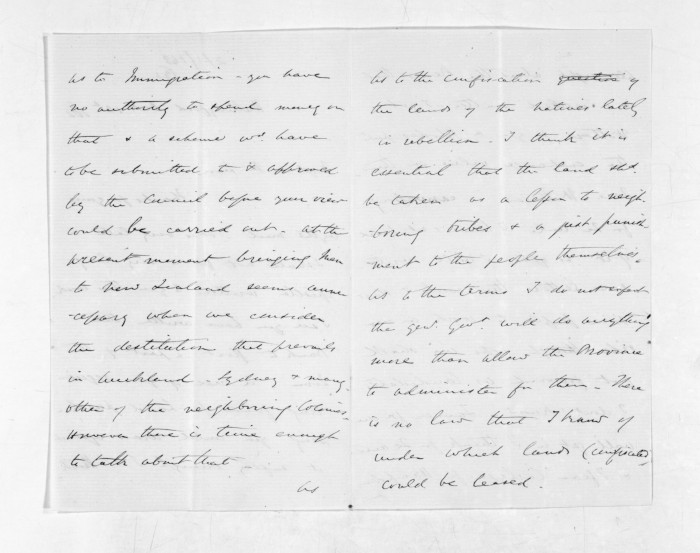 as to Immigration - you have
no authority to spend money on
that & a scheme wd. have
to be submitted to & approved
by the Council before your view
could be carried out - at the
present moment bringing men
to New Zealand seems unne
-cessary when we consider
the destitution that prevails
in Auckland - Sydney & many
other of the neighboring Colonies.
However there is time enough
to talk about that
as
as to the confiscation question of
the lands of the natives lately
in rebellion. I think it is
essential that the land shd.
be taken as a lesson to neigh-
boring tribes & a just punish
ment to the people themselves.
as to the terms I do not expect
the genl. Govt. will do anything
more than allow the Province
to administer for them - There
is no law that I know of
under which lands (confiscated)
could be leased.